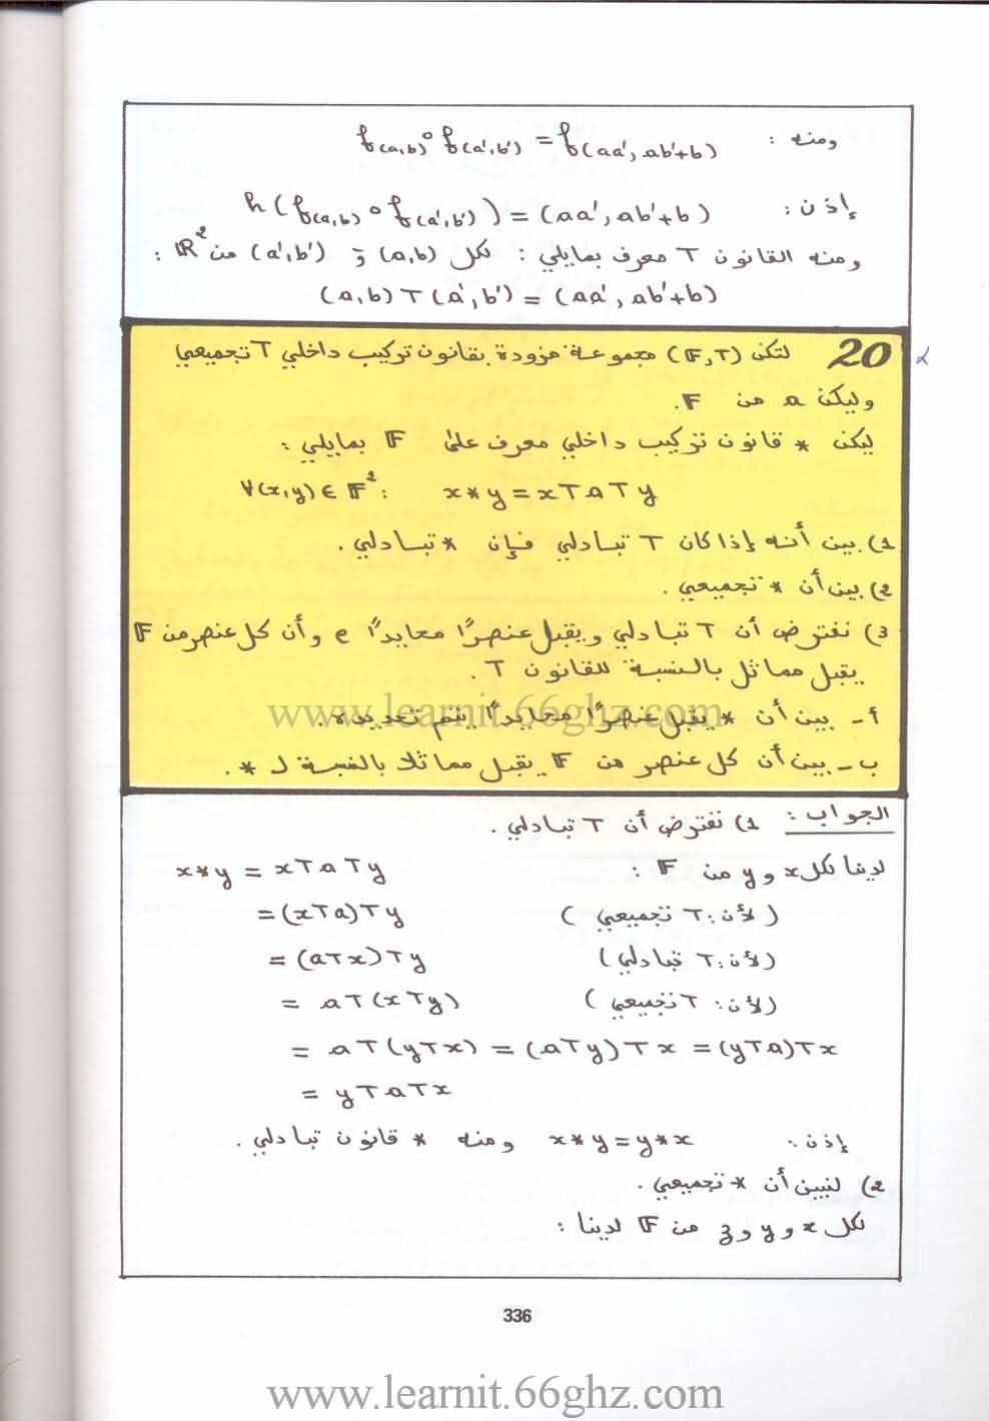 ومنه : f(a,b)∘f(a',b') = f(aa', ab'+b)
إذن : h(f(a,b)∘f(a',b')) = (aa', ab'+b)
ومنه القانون T معرف بمايلي : لكل (a,b) و (a',b') من ℝ² :
(a,b) T (a',b') = (aa', ab'+b)
20 لتكن (𝔽,T) مجموعة مزودة بقانون تركيب داخلي T تجميعي
وليكن a من 𝔽.
ليكن * قانون تركيب داخلي معرف على 𝔽 بمايلي :
∀(x,y) ∈ 𝔽² : x*y = xTaTy
1) بين أنه إذا كان T تبادلي فإن * تبادلي .
2) بين أن * تجميعي .
3) نفترض أن T تبادلي ويقبل عنصرًا محايدًا e وأن كل عنصر من 𝔽
يقبل مماثل بالنسبة للقانون T .
أ - بين أن * يقبل عنصرًا محايدًا يتم تحديده .
ب - بين أن كل عنصر من 𝔽 يقبل مماثلا بالنسبة لـ * .
www.learnit.66ghz.com
الجواب : 1) نفترض أن T تبادلي .
لدينا لكل x و y من 𝔽 : x*y = xTaTy
= (xTa)Ty (لأن : T تجميعي)
= (aTx)Ty (لأن : T تبادلي)
= aT(xTy) (لأن : T تجميعي)
= aT(yTx) = (aTy)Tx = (yTa)Tx
= yTaTx
إذن : x*y = y*x ومنه * قانون تبادلي .
2) لنبين أن * تجميعي .
لكل x و y و z من 𝔽 لدينا :
336
www.learnit.66ghz.com